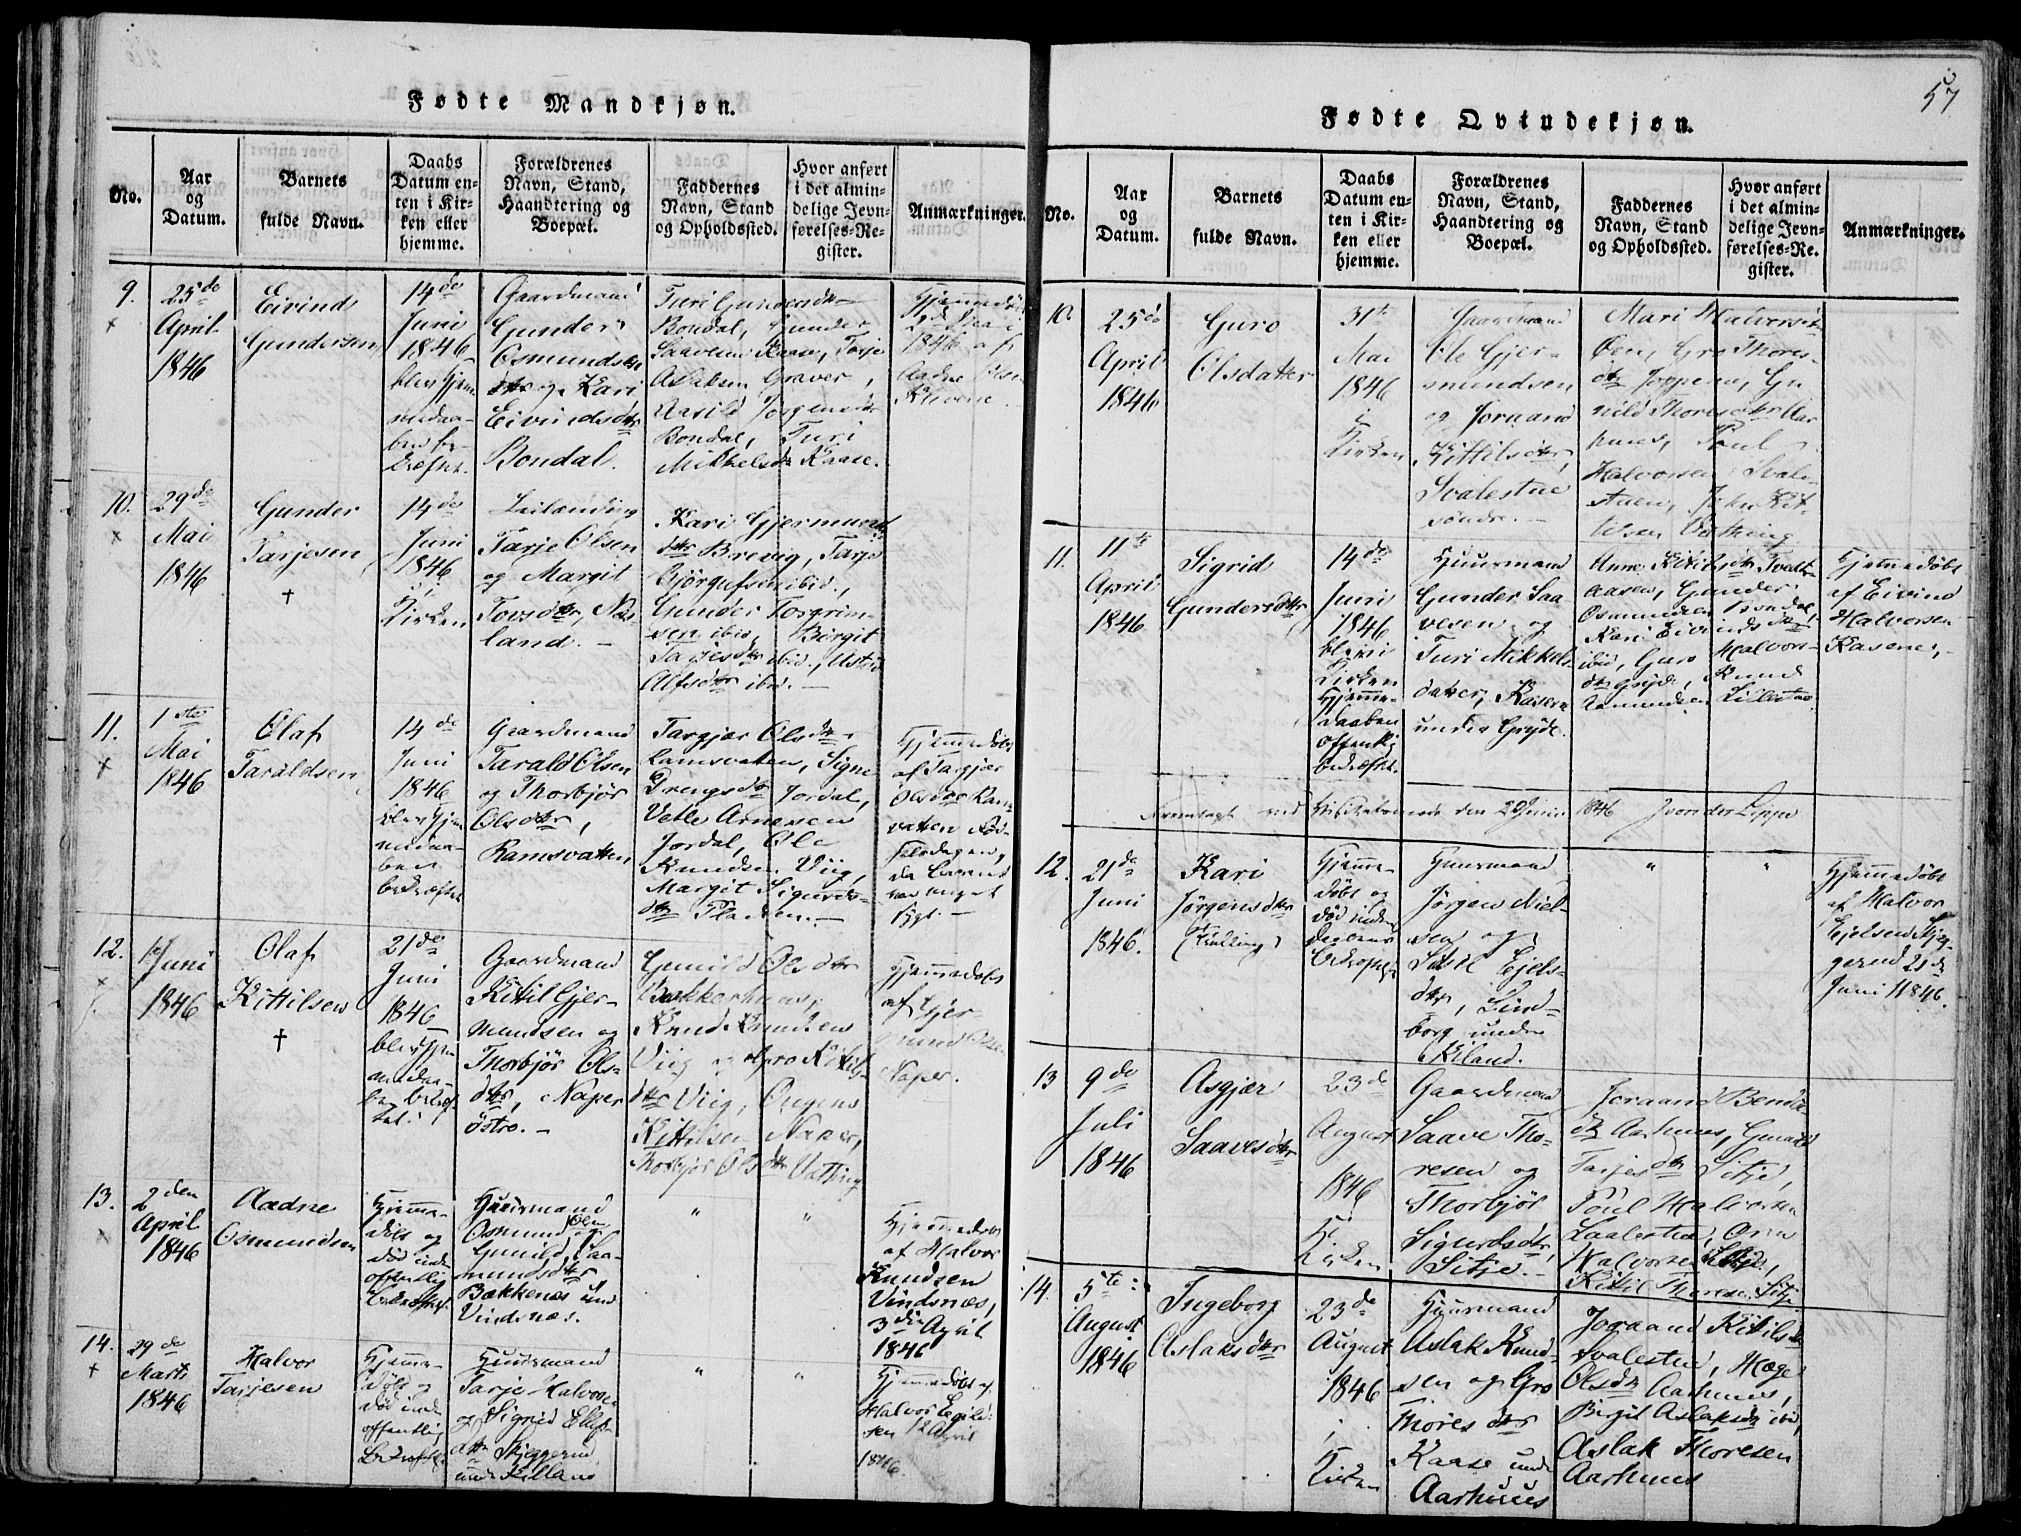 57
Fødte Mandkjøn.
No.
Aar
og
Datum.
Barnets
fulde Navn.
Daabs
Datum en-
ten i Kir-
ken eller
hjemme.
Forældrenes
Navn, Stand,
Haandtering og
Boepæl.
Faddernes
Navn, Stand
og Opholdssted.
Hvor anført
i det almin-
delige Jevn-
førelses-Re-
gister.
Anmærkninger.
9.
25de
April
1846
Eivind
Gundersen
14de
Juni
1846
blev Hjem-
medaa-
ben be-
kræftet.
Gaardmand
Gunder
Osmundsen
og Kari
Eivindsdtr
Bondal.
Turi Gundersdtr
Bondal, Gunder
Saavesen Kaase, Torje
Aslaksen Graver,
Aasild Jørgensdtr
Bondal, Turi
Mikkelsdtr Kaase.
Hjemmedøbt
1846 af
Aadne Olsen
10.
29de
Mai
1846
Gunder
Tarjesen
†
14de
Juni
1846
i
Kirken
Tarje Olsen
og Margit
Torsdtr, Næs-
land.
Kari Gjermunds
dtr Brevig, Tarje
Bjørgufsen ibid.,
Gunder Torgrim-
sen ibid, Birgit
Tarjesdtr ibid.,
Alfsdtr ibid.
11.
1ste
Mai
1846
Olaf
Taraldsen
14de
Juni
1846
blev Hjem
medaa-
ben
bekræftet
Gaardmand
Tarald Olsen
og Thorbjør
Olsdtr,
Ramsvatten
Targjær Olsdtr
Ramsvatten, Signe
Drengsdtr Jordal,
Vetle Arnesen
Jordal, Ole
Knudsen Viig,
Margit Sigurds-
dtr
Hjemmedøbt
af Targjær
Olsdtr Ram
vatten Fød-
selsdagen,
da Barnet
var meget
sygt.
12.
Juni
1846
Olaf
Kittilsen
†
21de
Juni
1846
blev Hjem
medaa-
ben bekræf
tet.
Gaardmand
Kittil Gjer-
mundsen og
Thorbjør Ols-
dtr, Naper
østre.
Gunild Olsdtr
Bakkerhuus,
Knud Knudsen
Viig og Gro Kittils-
dtr Viig,
Kittilsen Naper,
Thorbjør Olsdtr Vatting
Hjemmedøbt
af Gjer-
mund
Naper.
13.
2den
April
1846
Aadne
Osmundsen
Hjemme-
døbt og
død inden
offentlig
Bekræftel.
Huusmand
Osmund Olsen
Gunild Saa-
mundsdtr
Bakkenes und
Vindsnæs.
"
"
Hjemmedøbt
af Halvor
Knudsen
Vindsnæs,
3die April
1846
14.
29de
Marts
1846
Halvor
Tarjesen
Hjemme-
døbt og
død inden
offentlig
Bekræftel.
Huusmand
Tarje Halvorsen
og Sigrid Ellef-
dtr Skjeggerud
under Killand
"
"
Hjemmedøbt af
Halvor Egild-
sen 12 April
1846.
Fødte Qvindekjøn.
No.
Aar
og
Datum.
Barnets
fulde Navn.
Daabs
Datum en-
ten i Kir-
ken eller
hjemme.
Forældrenes
Navn, Stand,
Haandtering og
Boepæl.
Faddernes
Navn, Stand
og Opholdssted.
Hvor anført
i det almin-
delige Jevn-
førelses-Re-
gister.
Anmærkninger.
10.
25de
April
1846
Guro
Olsdatter
31te
Mai
1846
i
Kirken
Gaardmand
Ole Gjer-
mundsen
og Joraand
Kittilsdtr,
Svalestue
søndre.
Mari Halvorsdtr
Øen, Gro Thores-
dtr
nild Thoresdtr Aar
huus, Poul
Halvorsen Svale-
stuen, John Kit-
tilsen Vatning
11.
11te
April
1846
Sigrid
Gundersdtr
14de
Juni
1846
blev i
Kirken
Hjemme-
daaben
offentlig
bekræftet.
Huusmand
Gunder Saa
vesen og
Turi Mikkels-
datter, Kaasen
under Gryde.
Anne Kittilsdtr Tvedt-
aasen, Gunder
Osmundsen Bondal,
Kari Eivindsdtr
ibid, Guro Halvors-
dtr Gryde, Knud
Hjemmedøbt
af Eivind
Halvorsen
Kasene,
Fremlagt ved
den 29 Juni 1846
12.
21de
Juni
1846.
Kari
Jørgensdtr
(Tvilling)
Hjemme-
døbt og
død inden
Daabens
Bekræftel.
Huusmand
Jørgen Niel-
sen og
Sissil Ejels-
dtr, Lind-
borg under
Kiland.
"
"
Hjemmedøbt
af Halvor
Ejelsen Skjeg-
gerud 21de
Juni 1846.
13
9de
Juli
1846
Asgjær
Saavesdtr
23de
August
1846
i
Kirken
Gaardmand
Saave Tho-
resen og
Thorbjør
Sigurdsdtr,
Sitje.
Joraand Bends-
dtr Aarhuus, Gunild
Tarjesdtr Sitje,
Poul Halvorsen
Halvorsen Sitje,
Kittil Thoresen Sitje
14.
5te
August
1846
Ingeborg
Aslaksdtr
23de
August
1846
i
Kirken
Huusmand
Aslak Knud-
sen og Gro
Thoresdtr
Kaase under
Aarhuus
Joraand Kittilsdtr
Svalestue, Hæge
Olsdtr Aarhuus,
Birgit Aslaksdtr ibid,
Aslak Thoresen
Aarhuus